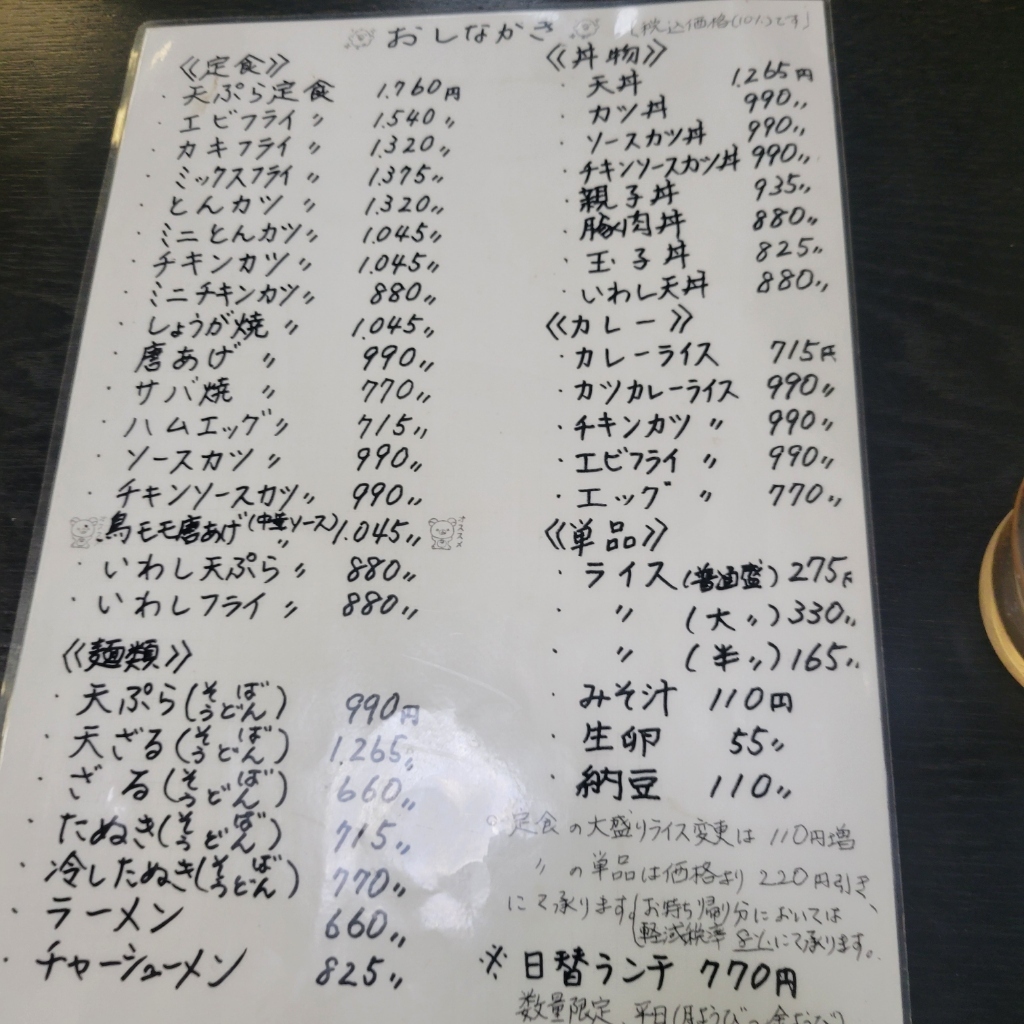 おしなかき
「税込価格(10%)です」
《定食》
・天ぷら定食 1.760円
・エビフライ 〃 1.540〃
・カキフライ 〃 1.320〃
・ミックスフライ 〃 1.375〃
・とんカツ 〃 1.320〃
・ミニとんカツ 〃 1.045〃
・チキンカツ 〃 1.045〃
・ミニチキンカツ 〃 880〃
・しょうが焼 〃 1.045〃
・唐あげ 〃 990〃
・サバ焼 〃 770〃
・ハムエッグ 〃 715〃
・ソースカツ 〃 990〃
・チキンソースカツ 〃 990〃
・鳥モモ唐あげ(中華ソース) 〃 1.045〃
オススメ
・いわし天ぷら 〃 880〃
・いわしフライ 〃 880〃
《麺類》
・天ぷら(そば うどん) 990円
・天ざる(そば うどん) 1.265〃
・ざる(そば うどん) 660〃
・たぬき(そば うどん) 715〃
・冷したぬき(そば うどん) 770〃
・ラーメン 660〃
・チャーシューメン 825〃
《丼物》
・天丼 1.265円
・カツ丼 990〃
・ソースカツ丼 990〃
・チキンソースカツ丼 990〃
・親子丼 935〃
・豚肉丼 880〃
・玉子丼 825〃
・いわし天丼 880〃
《カレー》
・カレーライス 715円
・カツカレーライス 990〃
・チキンカツ 〃 990〃
・エビフライ 〃 990〃
・エッグ 〃 770〃
《単品》
・ライス(普通盛) 275円
・〃 (大〃) 330〃
・〃 (半〃) 165〃
・みそ汁 110円
・生卵 55〃
・納豆 110〃
○定食の大盛りライス変更は110円増
〃の単品は価格より220円引き、
にて承ります。(お持ち帰り分においては
軽減税率8%にて承ります。
※日替ランチ 770円
数量限定、平日(月ようび〜金ようび)